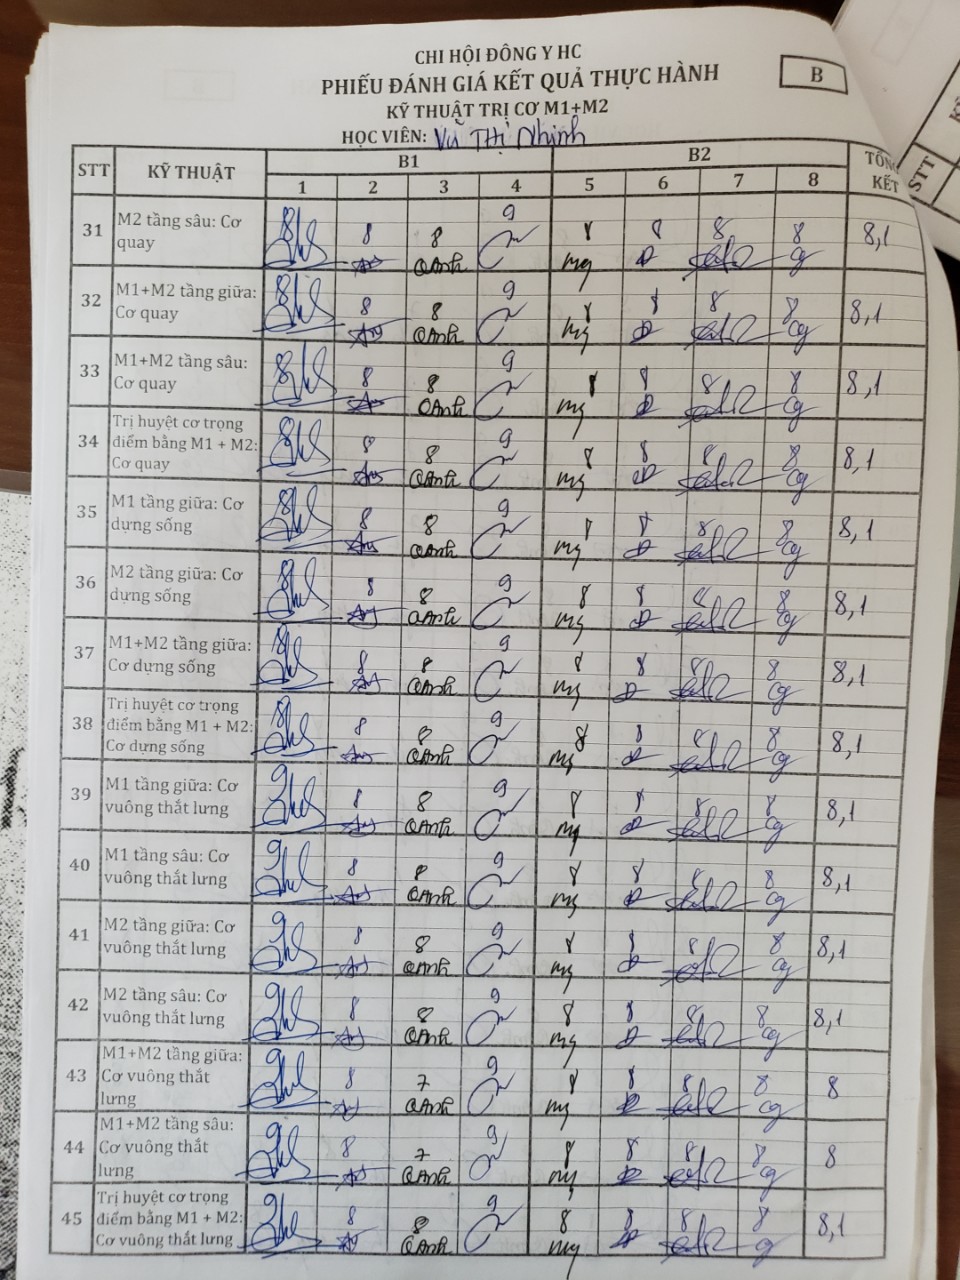 CHI HỘI ĐÔNG Y HC
PHIẾU ĐÁNH GIÁ KẾT QUẢ THỰC HÀNH
B
KỸ THUẬT TRỊ CƠ M1+M2
HỌC VIÊN: Vũ Thị Nhịnh
STT KỸ THUẬT B1 B2 TỔNG KẾT
1 2 3 4 5 6 7 8
31 M2 tầng sâu: Cơ quay 8 8 8 9 8 8 8 8 8,1
QAnh mg
32 M1+M2 tầng giữa: Cơ quay 8 8 8 9 8 8 8 8 8,1
QAnh mg
33 M1+M2 tầng sâu: Cơ quay 8 8 8 9 8 8 8 8 8,1
QAnh mg
34 Trị huyệt cơ trọng điểm bằng M1 + M2: Cơ quay 8 8 8 9 8 8 8 8 8,1
QAnh mg
35 M1 tầng giữa: Cơ dựng sống 8 8 8 9 8 8 8 8 8,1
QAnh mg
36 M2 tầng giữa: Cơ dựng sống 8 8 8 9 8 8 8 8 8,1
QAnh mg
37 M1+M2 tầng giữa: Cơ dựng sống 8 8 8 9 8 8 8 8 8,1
QAnh mg
38 Trị huyệt cơ trọng điểm bằng M1 + M2: Cơ dựng sống 8 8 8 9 8 8 8 8 8,1
QAnh mg
39 M1 tầng giữa: Cơ vuông thắt lưng 9 8 8 9 8 8 8 8 8,1
QAnh mg
40 M1 tầng sâu: Cơ vuông thắt lưng 9 8 8 9 8 8 8 8 8,1
QAnh mg
41 M2 tầng giữa: Cơ vuông thắt lưng 9 8 8 9 8 8 8 8 8,1
QAnh mg
42 M2 tầng sâu: Cơ vuông thắt lưng 9 8 8 9 8 8 8 8 8,1
QAnh mg
43 M1+M2 tầng giữa: Cơ vuông thắt lưng 9 8 7 9 8 8 8 8 8
QAnh mg
44 M1+M2 tầng sâu: Cơ vuông thắt lưng 9 8 7 9 8 8 8 8 8
QAnh mg
45 Trị huyệt cơ trọng điểm bằng M1 + M2: Cơ vuông thắt lưng 9 8 8 9 8 8 8 8 8,1
QAnh mg
STT